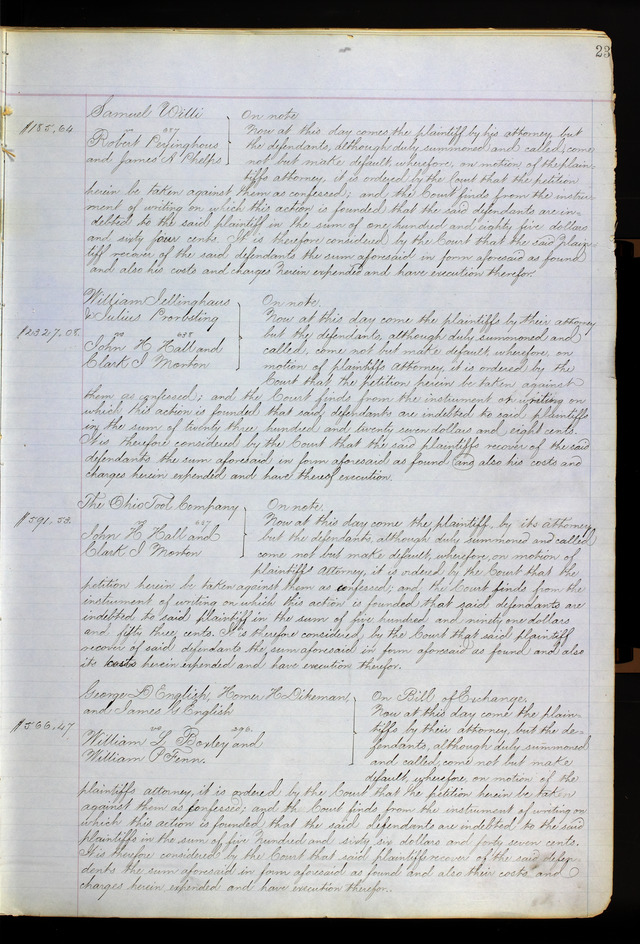 23
Samuel Witti
On note
$185.64
vs 657
Now at this day comes the plaintiff by his attorney, but
Robert Peringhous
the defendants, although duly summoned and called, come
and James N Phelps
not but make default, wherefore, on motion of the plain-
tiffs attorney, it is ordered by the Court that the petition
herein be taken against them as confessed; and, the Court finds from the instru-
ment of writing on which this action is founded that the said defendants are in-
debted to the said plaintiff in the sum of one hundred and eighty five dollars
and sixty four cents. It is therefore considered by the Court that the said plain-
tiff recover of the said defendants the sum aforesaid in form aforesaid as found
and also his costs and charges herein expended and have execution therefor.
William Sellinghaus
On note.
& Julius Prorbsting
Now at this day come the plaintiffs by their attorney
$2327.08.
vs 658
but the defendants, although duly summoned and
John H. Hall and
called, come not but make default, wherefore, on
Clark I Morton
motion of plaintiffs Attorney, it is ordered by the
Court that the petition herein be taken against
them as confessed; and the Court finds from the instrument on writing on
which this action is founded that said defendants are indebted to said plaintiffs
in the sum of twenty three hundred and twenty seven dollars and eight cents.
It is therefore considered by the Court that the said plaintiffs recover of the said
defendants the sum aforesaid in form aforesaid as found and also his costs and
charges herein expended and have thereof execution.
The Ohio Tool Company
On note.
$591.53.
vs 667
Now at this day come the plaintiff, by its attorney
John H. Hall and
but the defendants, although duly summoned and called
Clark I Morton
come not but make default, wherefore, on motion of
plaintiffs attorney, it is ordered by the Court that the
petition herein be taken against them as confessed; and, the Court finds from the
instrument of writing on which this action is founded that said defendants are
indebted to said plaintiff in the sum of five hundred and ninety one dollars
and fifty three cents. It is therefore considered by the Court that said plaintiff
recover of said defendants the sum aforesaid in form aforesaid as found and also
its costs herein expended and have execution therefor.
George D English, Homer H. Dikeman,
On Bill of Exchange.
and James G English
Now at this day come the plain-
$566.47
vs 290.
tiffs by their attorney, but the de-
William L Boxley and
fendants, although duly summoned
William P Fenn.
and called, come not but make
default, wherefore, on motion of the
plaintiffs attorney, it is ordered by the Court that the petition herein be taken
against them as confessed; and the Court finds from the instrument of writing on
which this action is founded that the said defendants are indebted to the said
plaintiffs in the sum of five hundred and sixty six dollars and forty seven cents.
It is therefore considered by the Court that said plaintiffs recover of the said defen-
dents the sum aforesaid in form aforesaid as found and also their costs and
charges herein expended and have execution therefor.